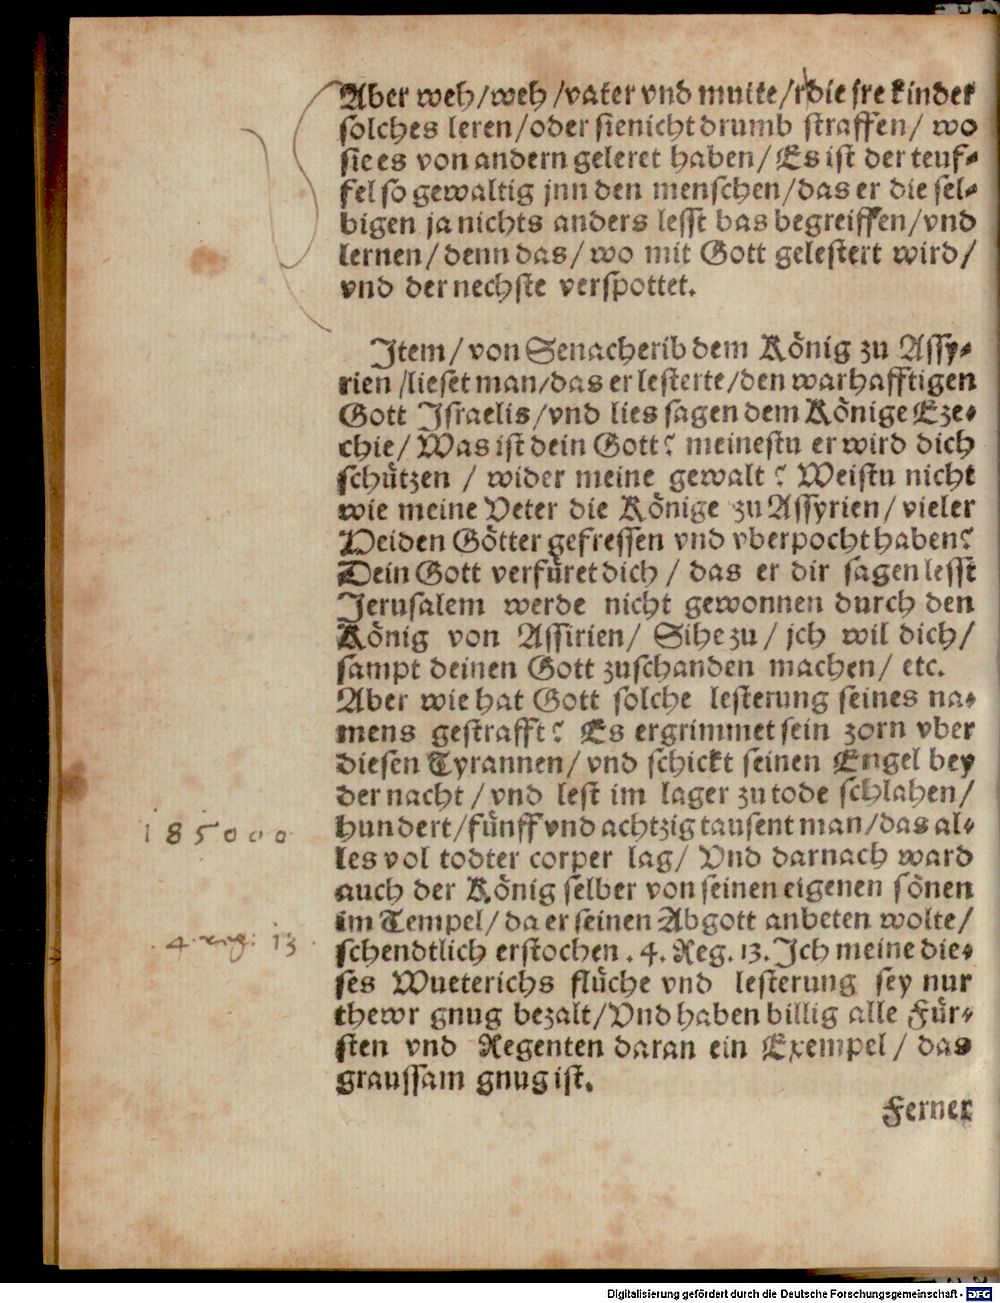 Aber weh/weh/vater vnd mutte/rdie jre kinder
solches leren/oder sienicht drumb straffen/ wo
sie es von andern geleret haben/ Es ist der teuf-
fel so gewaltig jnn den menschen/das er die sel-
bigen ja nichts anders lesst bas begreiffen/vnd
lernen/denn das/ wo mit Gott gelestert wird/
vnd der nechste verspottet.
Item/ von Senacherib dem König zu Assy-
rien/lieset man/das er lesterte/den warhafftigen
Gott Israelis/vnd lies sagen dem Könige Eze-
chie/ Was ist dein Gott? meinestu er wird dich
schützen / wider meine gewalt? Weistu nicht
wie meine Veter die Könige zu Assyrien/ vieler
Heiden Götter gefressen vnd vberpocht haben?
Dein Gott verfüret dich / das er dir sagen lesst
Jerusalem werde nicht gewonnen durch den
König von Assirien/ Sihe zu/ jch wil dich/
sampt deinen Gott zuschanden machen/ etc.
Aber wie hat Gott solche lesterung seines na-
mens gestrafft? Es ergrimmet sein zorn vber
diesen Tyrannen/ vnd schickt seinen Engel bey
der nacht / vnd lest im lager zu tode schlahen/
185000
hundert/fünff vnd achtzig tausent man/das al-
les vol todter corper lag/ Vnd darnach ward
auch der König selber von seinen eigenen sönen
im Tempel/ da er seinen Abgott anbeten wolte/
4. reg: 13.
schendtlich erstochen. 4. Reg. 13. Ich meine die-
ses Wueterichs flüche vnd lesterung sey nur
thewr gnug bezalt/Vnd haben billig alle Für-
sten vnd Regenten daran ein Exempel/ das
graussam gnug ist.
Ferner
Digitalisierung gefördert durch die Deutsche Forschungsgemeinschaft - DFG